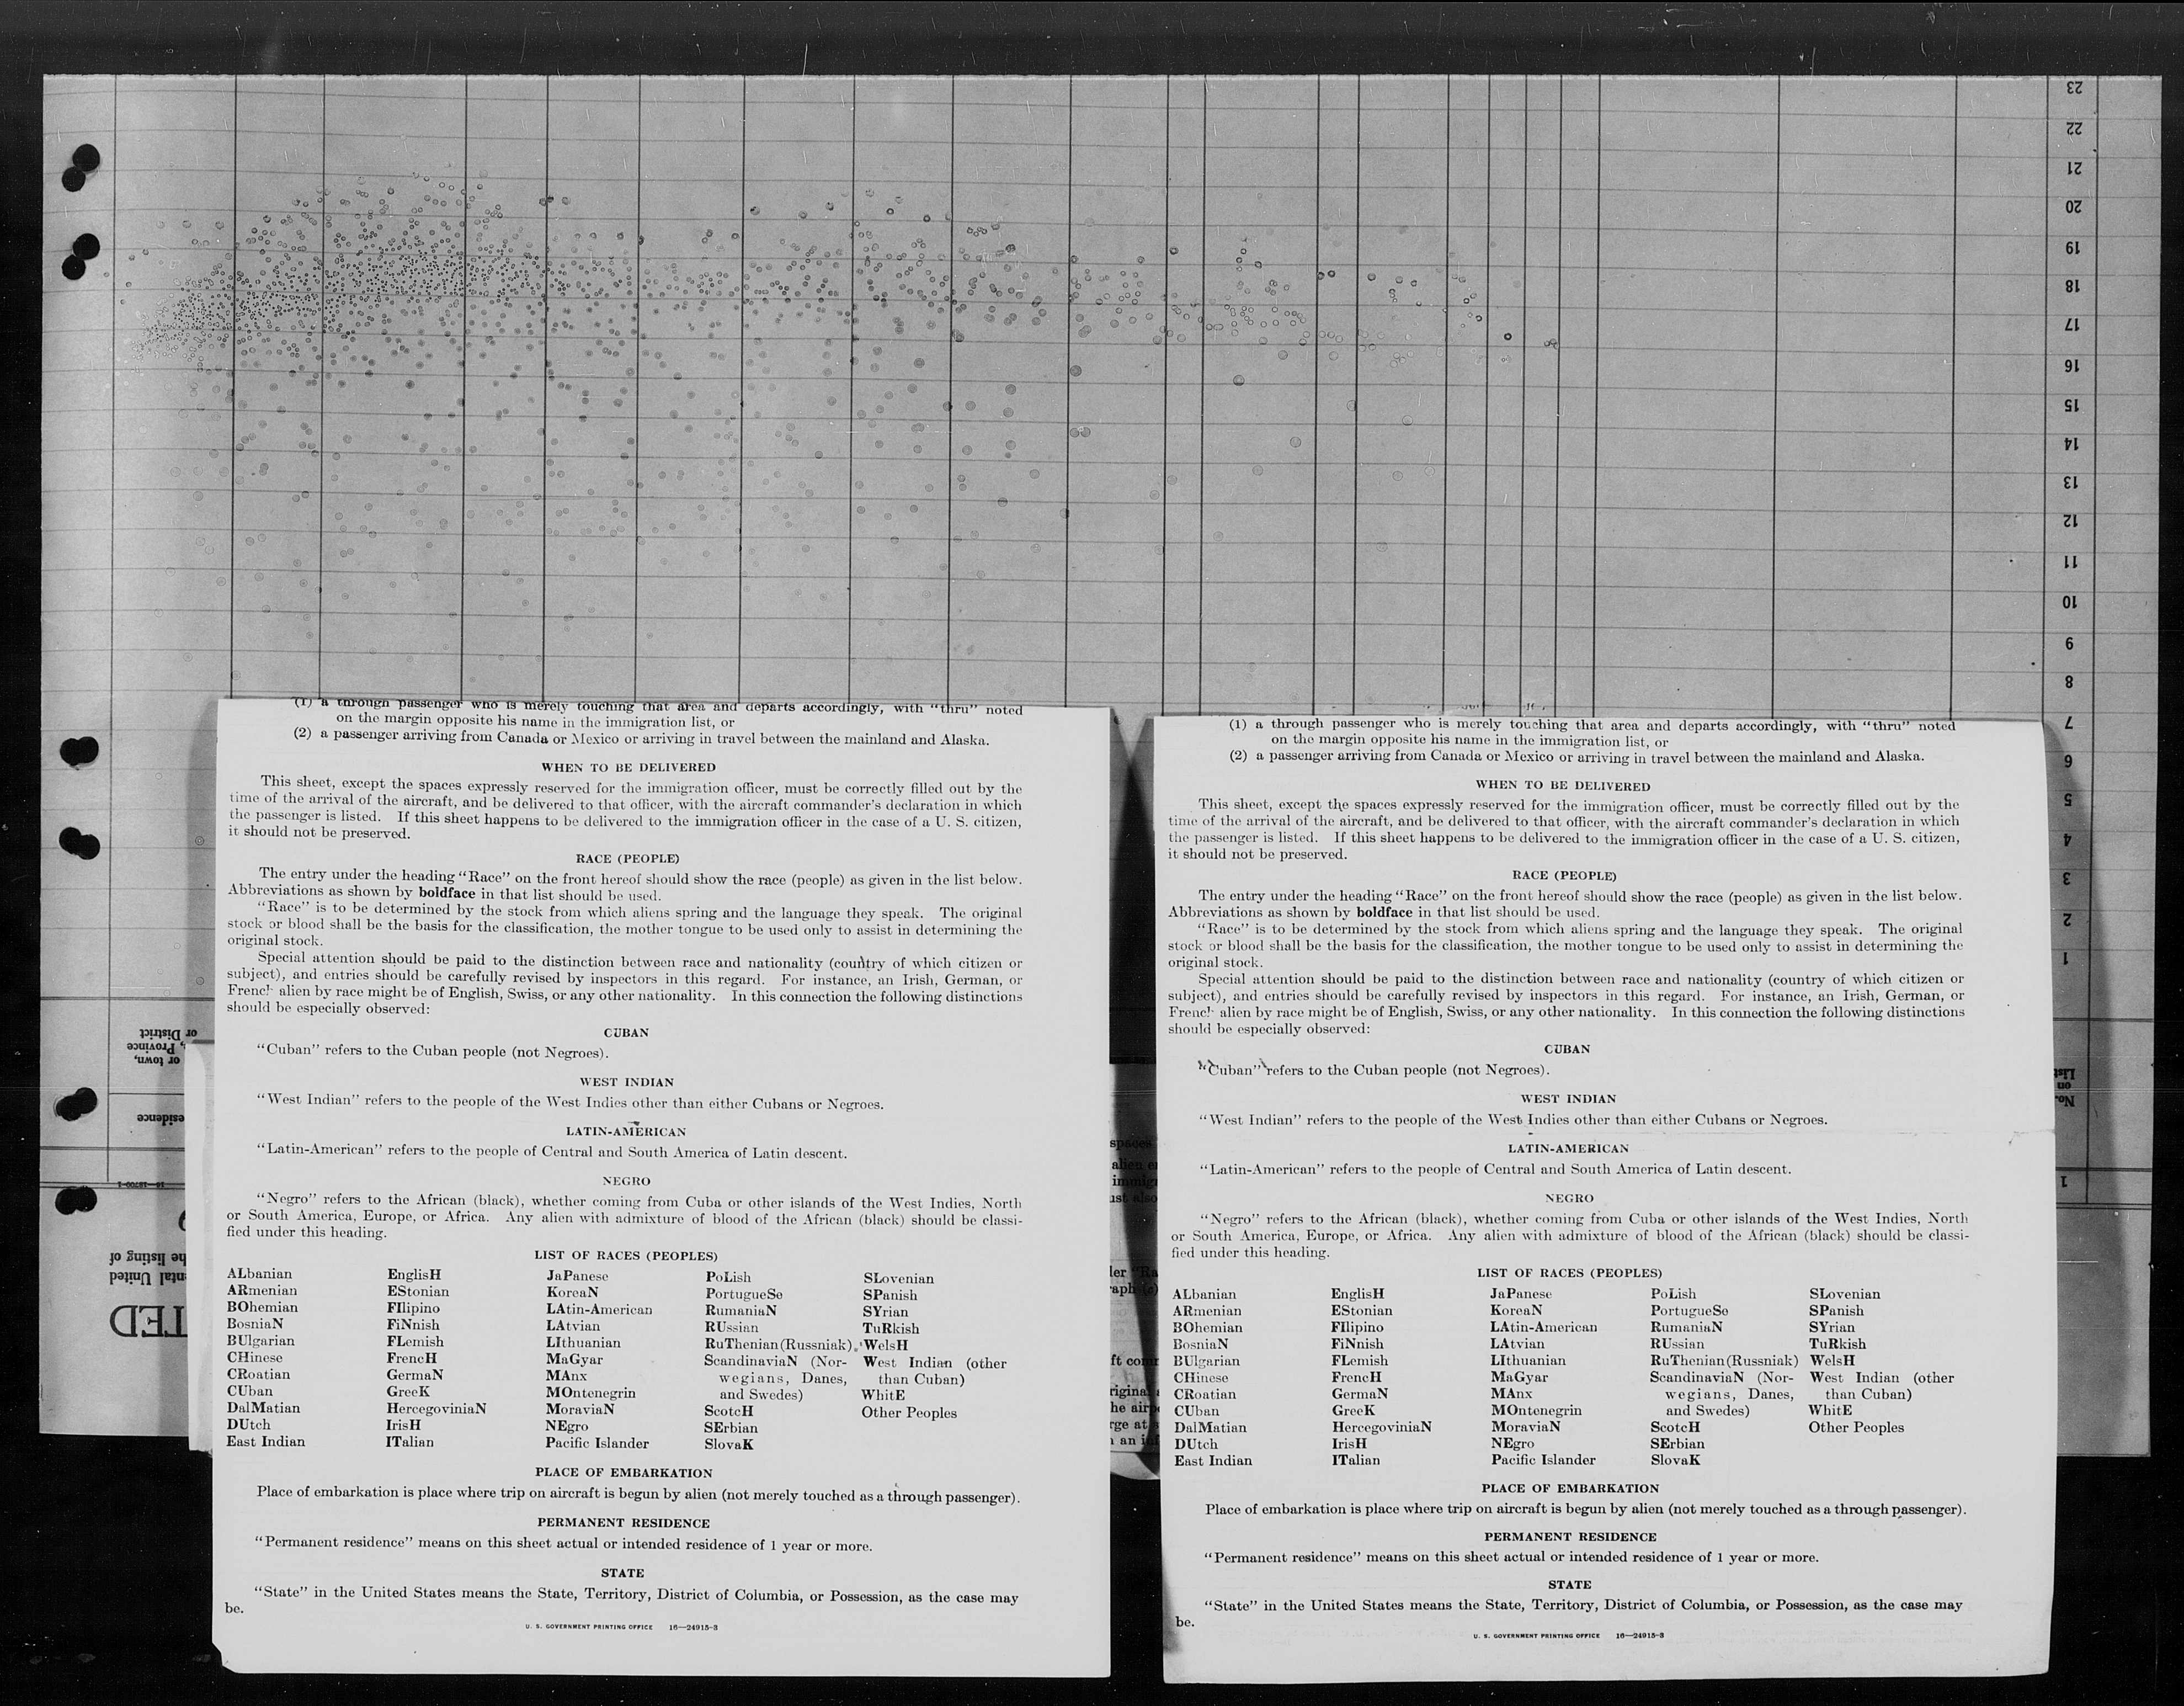 23
22
21
20
19
18
17
16
15
14
13
12
11
10
9
8
7
6
5
4
3
2
1
No.
on
List
1
or town,
Province
or District
16—18700-1
the listing of
TED
(1) a through passenger who is merely touching that area and departs accordingly, with “thru” noted
on the margin opposite his name in the immigration list, or
(2) a passenger arriving from Canada or Mexico or arriving in travel between the mainland and Alaska.
WHEN TO BE DELIVERED
This sheet, except the spaces expressly reserved for the immigration officer, must be correctly filled out by the
time of the arrival of the aircraft, and be delivered to that officer, with the aircraft commander’s declaration in which
the passenger is listed. If this sheet happens to be delivered to the immigration officer in the case of a U. S. citizen,
it should not be preserved.
RACE (PEOPLE)
The entry under the heading “Race” on the front hereof should show the race (people) as given in the list below.
Abbreviations as shown by boldface in that list should be used.
“Race” is to be determined by the stock from which aliens spring and the language they speak. The original
stock or blood shall be the basis for the classification, the mother tongue to be used only to assist in determining the
original stock.
Special attention should be paid to the distinction between race and nationality (country of which citizen or
subject), and entries should be carefully revised by inspectors in this regard. For instance, an Irish, German, or
French alien by race might be of English, Swiss, or any other nationality. In this connection the following distinctions
should be especially observed:
CUBAN
“Cuban” refers to the Cuban people (not Negroes).
WEST INDIAN
“West Indian” refers to the people of the West Indies other than either Cubans or Negroes.
LATIN-AMERICAN
“Latin-American” refers to the people of Central and South America of Latin descent.
NEGRO
“Negro” refers to the African (black), whether coming from Cuba or other islands of the West Indies, North
or South America, Europe, or Africa. Any alien with admixture of blood of the African (black) should be classi-
fied under this heading.
LIST OF RACES (PEOPLES)
ALbanian EnglisH JaPanese PoLish SLovenian
ARmenian EStonian KoreaN PortugueSe SPanish
BOhemian FIlipino LAtin-American RumaniaN SYrian
BosniaN FiNnish LAtvian RUssian TuRkish
BUlgarian FLemish LIthuanian RuThenian (Russniak) WelsH
CHinese FrencH MaGyar ScandinaviaN (Nor- West Indian (other
CRoatian GermaN MAnx wegians, Danes, than Cuban)
CUban GreeK MOntenegrin and Swedes) WhitE
DalMatian HercegoviniaN MoraviaN ScotcH Other Peoples
DUtch IrisH NEgro SErbian
East Indian ITalian Pacific Islander SlovaK
PLACE OF EMBARKATION
Place of embarkation is place where trip on aircraft is begun by alien (not merely touched as a through passenger).
PERMANENT RESIDENCE
“Permanent residence” means on this sheet actual or intended residence of 1 year or more.
STATE
“State” in the United States means the State, Territory, District of Columbia, or Possession, as the case may
be.
U. S. GOVERNMENT PRINTING OFFICE 16—24915-3
(1) a through passenger who is merely touching that area and departs accordingly, with “thru” noted
on the margin opposite his name in the immigration list, or
(2) a passenger arriving from Canada or Mexico or arriving in travel between the mainland and Alaska.
WHEN TO BE DELIVERED
This sheet, except the spaces expressly reserved for the immigration officer, must be correctly filled out by the
time of the arrival of the aircraft, and be delivered to that officer, with the aircraft commander’s declaration in which
the passenger is listed. If this sheet happens to be delivered to the immigration officer in the case of a U. S. citizen,
it should not be preserved.
RACE (PEOPLE)
The entry under the heading “Race” on the front hereof should show the race (people) as given in the list below.
Abbreviations as shown by boldface in that list should be used.
“Race” is to be determined by the stock from which aliens spring and the language they speak. The original
stock or blood shall be the basis for the classification, the mother tongue to be used only to assist in determining the
original stock.
Special attention should be paid to the distinction between race and nationality (country of which citizen or
subject), and entries should be carefully revised by inspectors in this regard. For instance, an Irish, German, or
French alien by race might be of English, Swiss, or any other nationality. In this connection the following distinctions
should be especially observed:
CUBAN
“Cuban” refers to the Cuban people (not Negroes).
WEST INDIAN
“West Indian” refers to the people of the West Indies other than either Cubans or Negroes.
LATIN-AMERICAN
“Latin-American” refers to the people of Central and South America of Latin descent.
NEGRO
“Negro” refers to the African (black), whether coming from Cuba or other islands of the West Indies, North
or South America, Europe, or Africa. Any alien with admixture of blood of the African (black) should be classi-
fied under this heading.
LIST OF RACES (PEOPLES)
ALbanian EnglisH JaPanese PoLish SLovenian
ARmenian EStonian KoreaN PortugueSe SPanish
BOhemian FIlipino LAtin-American RumaniaN SYrian
BosniaN FiNnish LAtvian RUssian TuRkish
BUlgarian FLemish LIthuanian RuThenian (Russniak) WelsH
CHinese FrencH MaGyar ScandinaviaN (Nor- West Indian (other
CRoatian GermaN MAnx wegians, Danes, than Cuban)
CUban GreeK MOntenegrin and Swedes) WhitE
DalMatian HercegoviniaN MoraviaN ScotcH Other Peoples
DUtch IrisH NEgro SErbian
East Indian ITalian Pacific Islander SlovaK
PLACE OF EMBARKATION
Place of embarkation is place where trip on aircraft is begun by alien (not merely touched as a through passenger).
PERMANENT RESIDENCE
“Permanent residence” means on this sheet actual or intended residence of 1 year or more.
STATE
“State” in the United States means the State, Territory, District of Columbia, or Possession, as the case may
be.
U. S. GOVERNMENT PRINTING OFFICE 16—24915-3